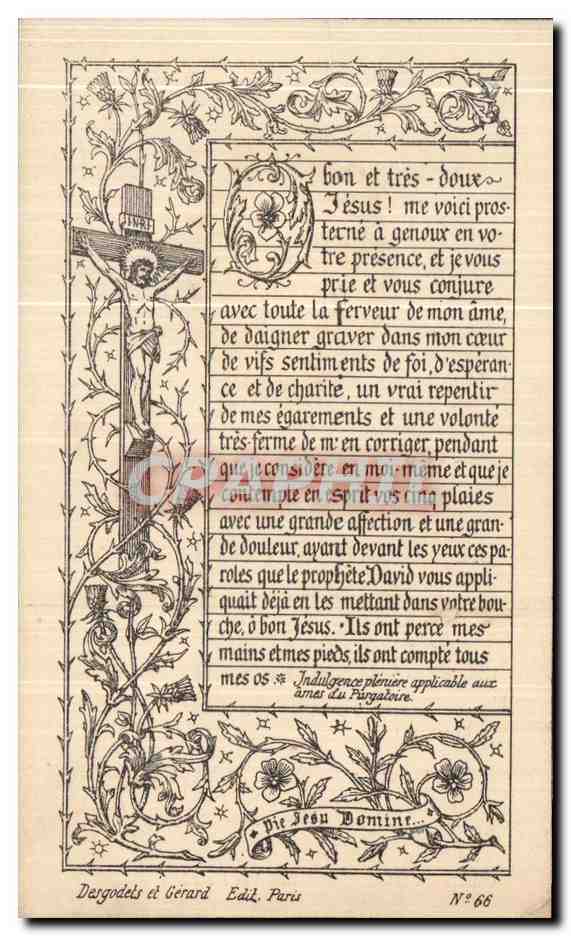 INRI
O bon et très-doux
Jésus! me voici pros-
terné à genoux en vo-
tre présence, et je vous
prie et vous conjure
avec toute la ferveur de mon âme,
de daigner graver dans mon cœur
de vifs sentiments de foi, d'espéran-
ce et de charité, un vrai repentir
de mes égarements et une volonté
très-ferme de m'en corriger, pendant
que je considère en moi-même et que je
contemple en esprit vos cinq plaies
avec une grande affection et une gran-
de douleur, ayant devant les yeux ces pa-
roles que le prophète David vous appli-
quait déjà en les mettant dans votre bou-
che, ô bon Jésus. Ils ont percé mes
mains et mes pieds, ils ont compté tous
mes os Indulgence plénière applicable aux
âmes du Purgatoire.
Pie Jesu Domine...
Desgodets et Gérard Edit. Paris
Nº 66
CPAPHIL